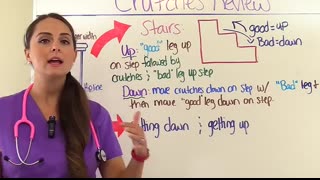 Crutches Review
Stairs:
good=up
Bad=down
Up: "good" leg up
on step followed by
crutches ; "bad" leg up step
Down: move crutches down on step w/ "Bad" leg
then move "good" leg down on step.
tting down ; getting up